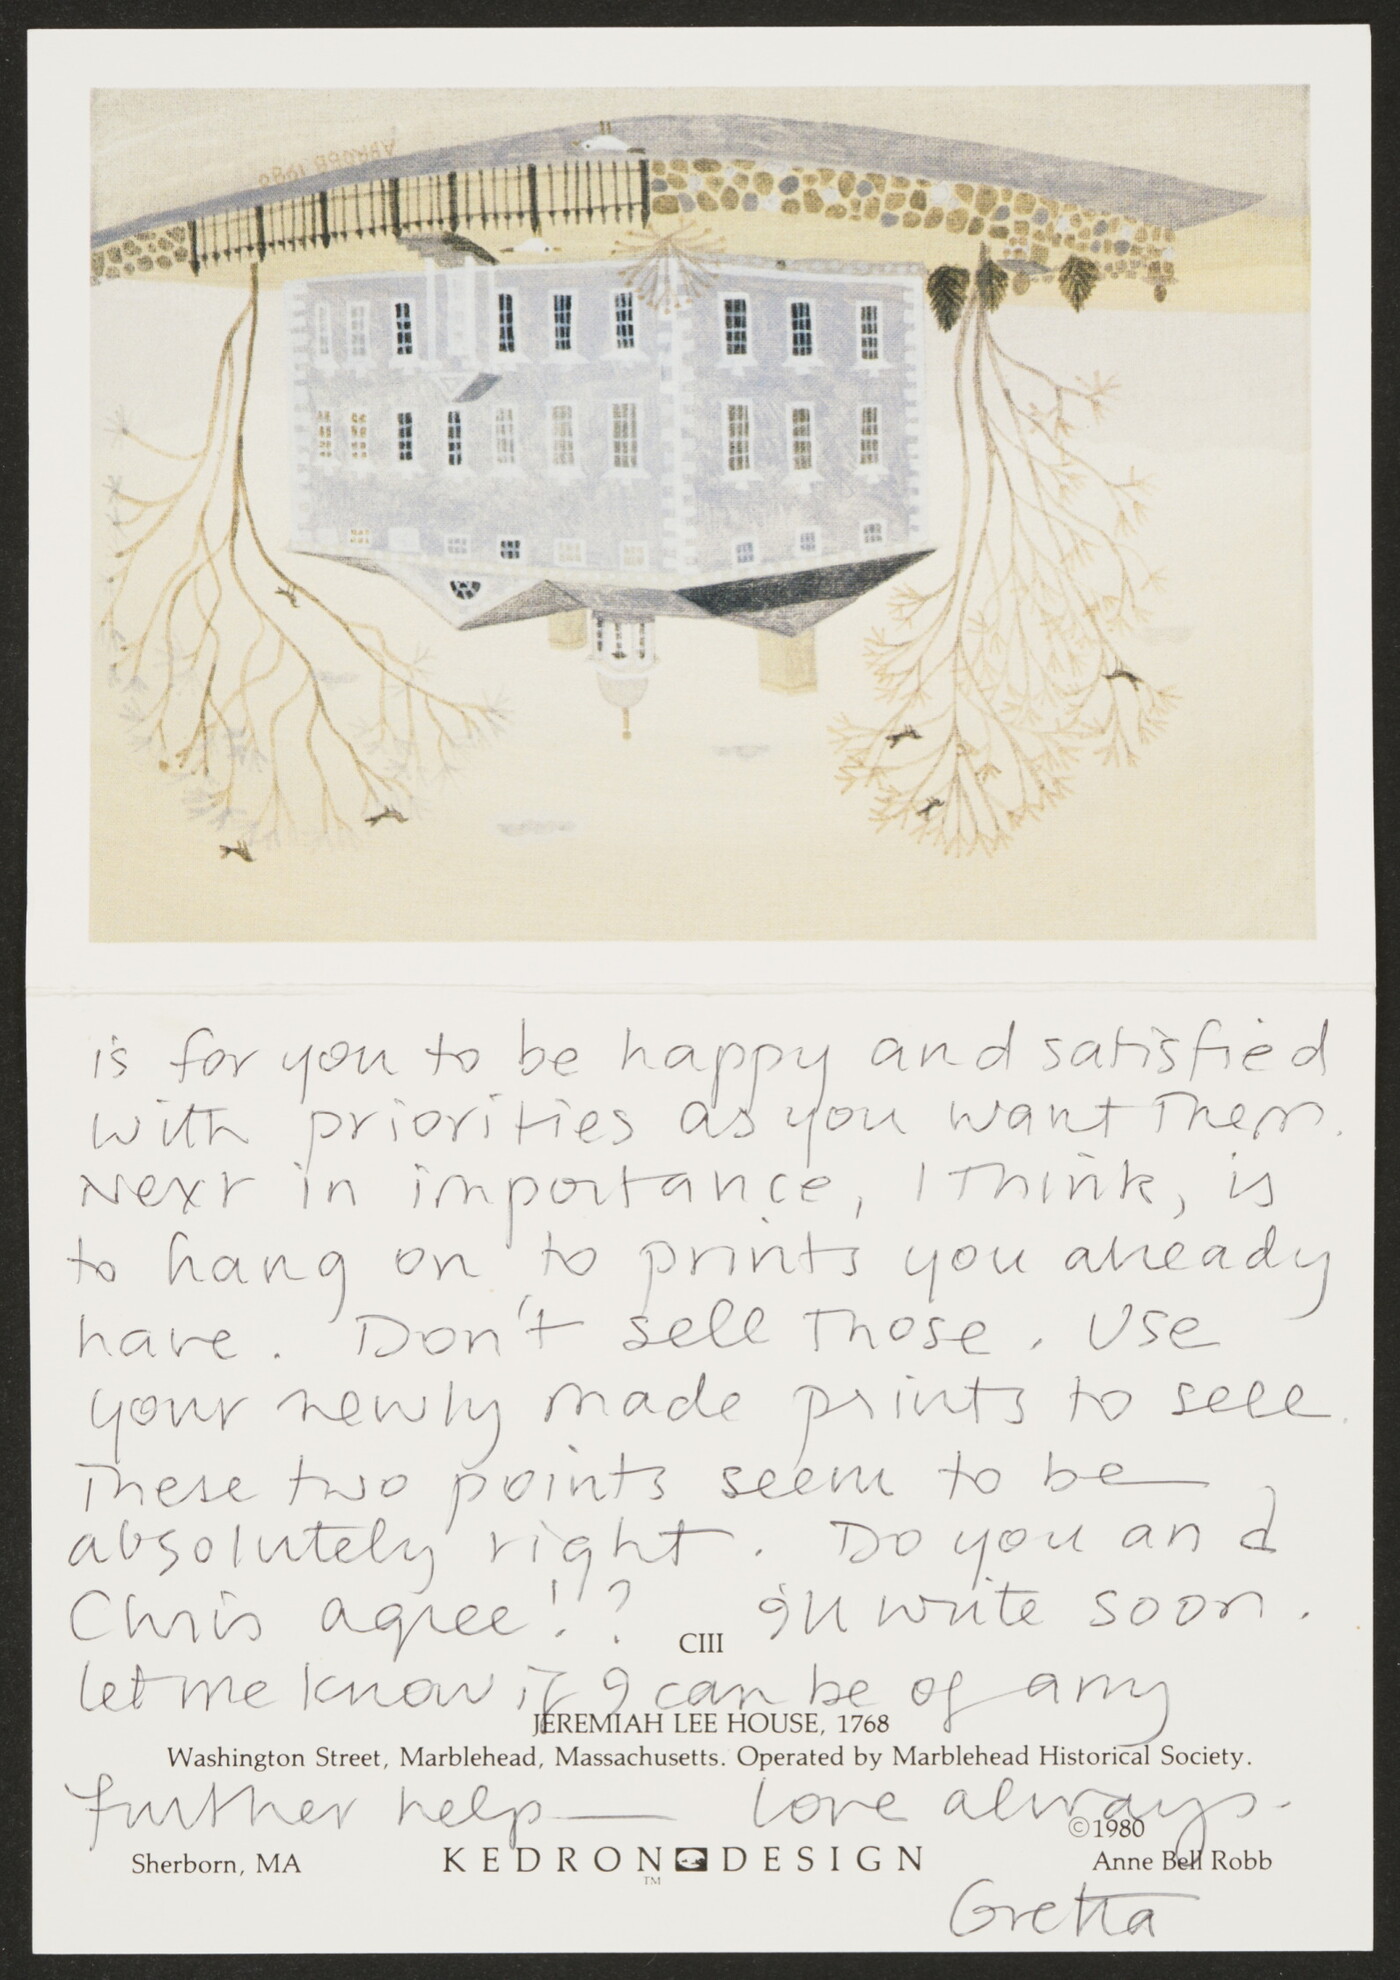 ABROBB 1980
is for you to be happy and satisfied
with priorities as you want them.
Next in importance, I think, is
to hang on to prints you already
have. Don't sell those. Use
your newly made prints to sell.
These two points seem to be
absolutely right. Do you and
Chris agree!? I'll write soon.
CIII
let me know if I can be of any
JEREMIAH LEE HOUSE, 1768
Washington Street, Marblehead, Massachusetts. Operated by Marblehead Historical Society.
further help— love always-
©1980
Sherborn, MA KEDRON DESIGN Anne Bell Robb
TM
Gretta